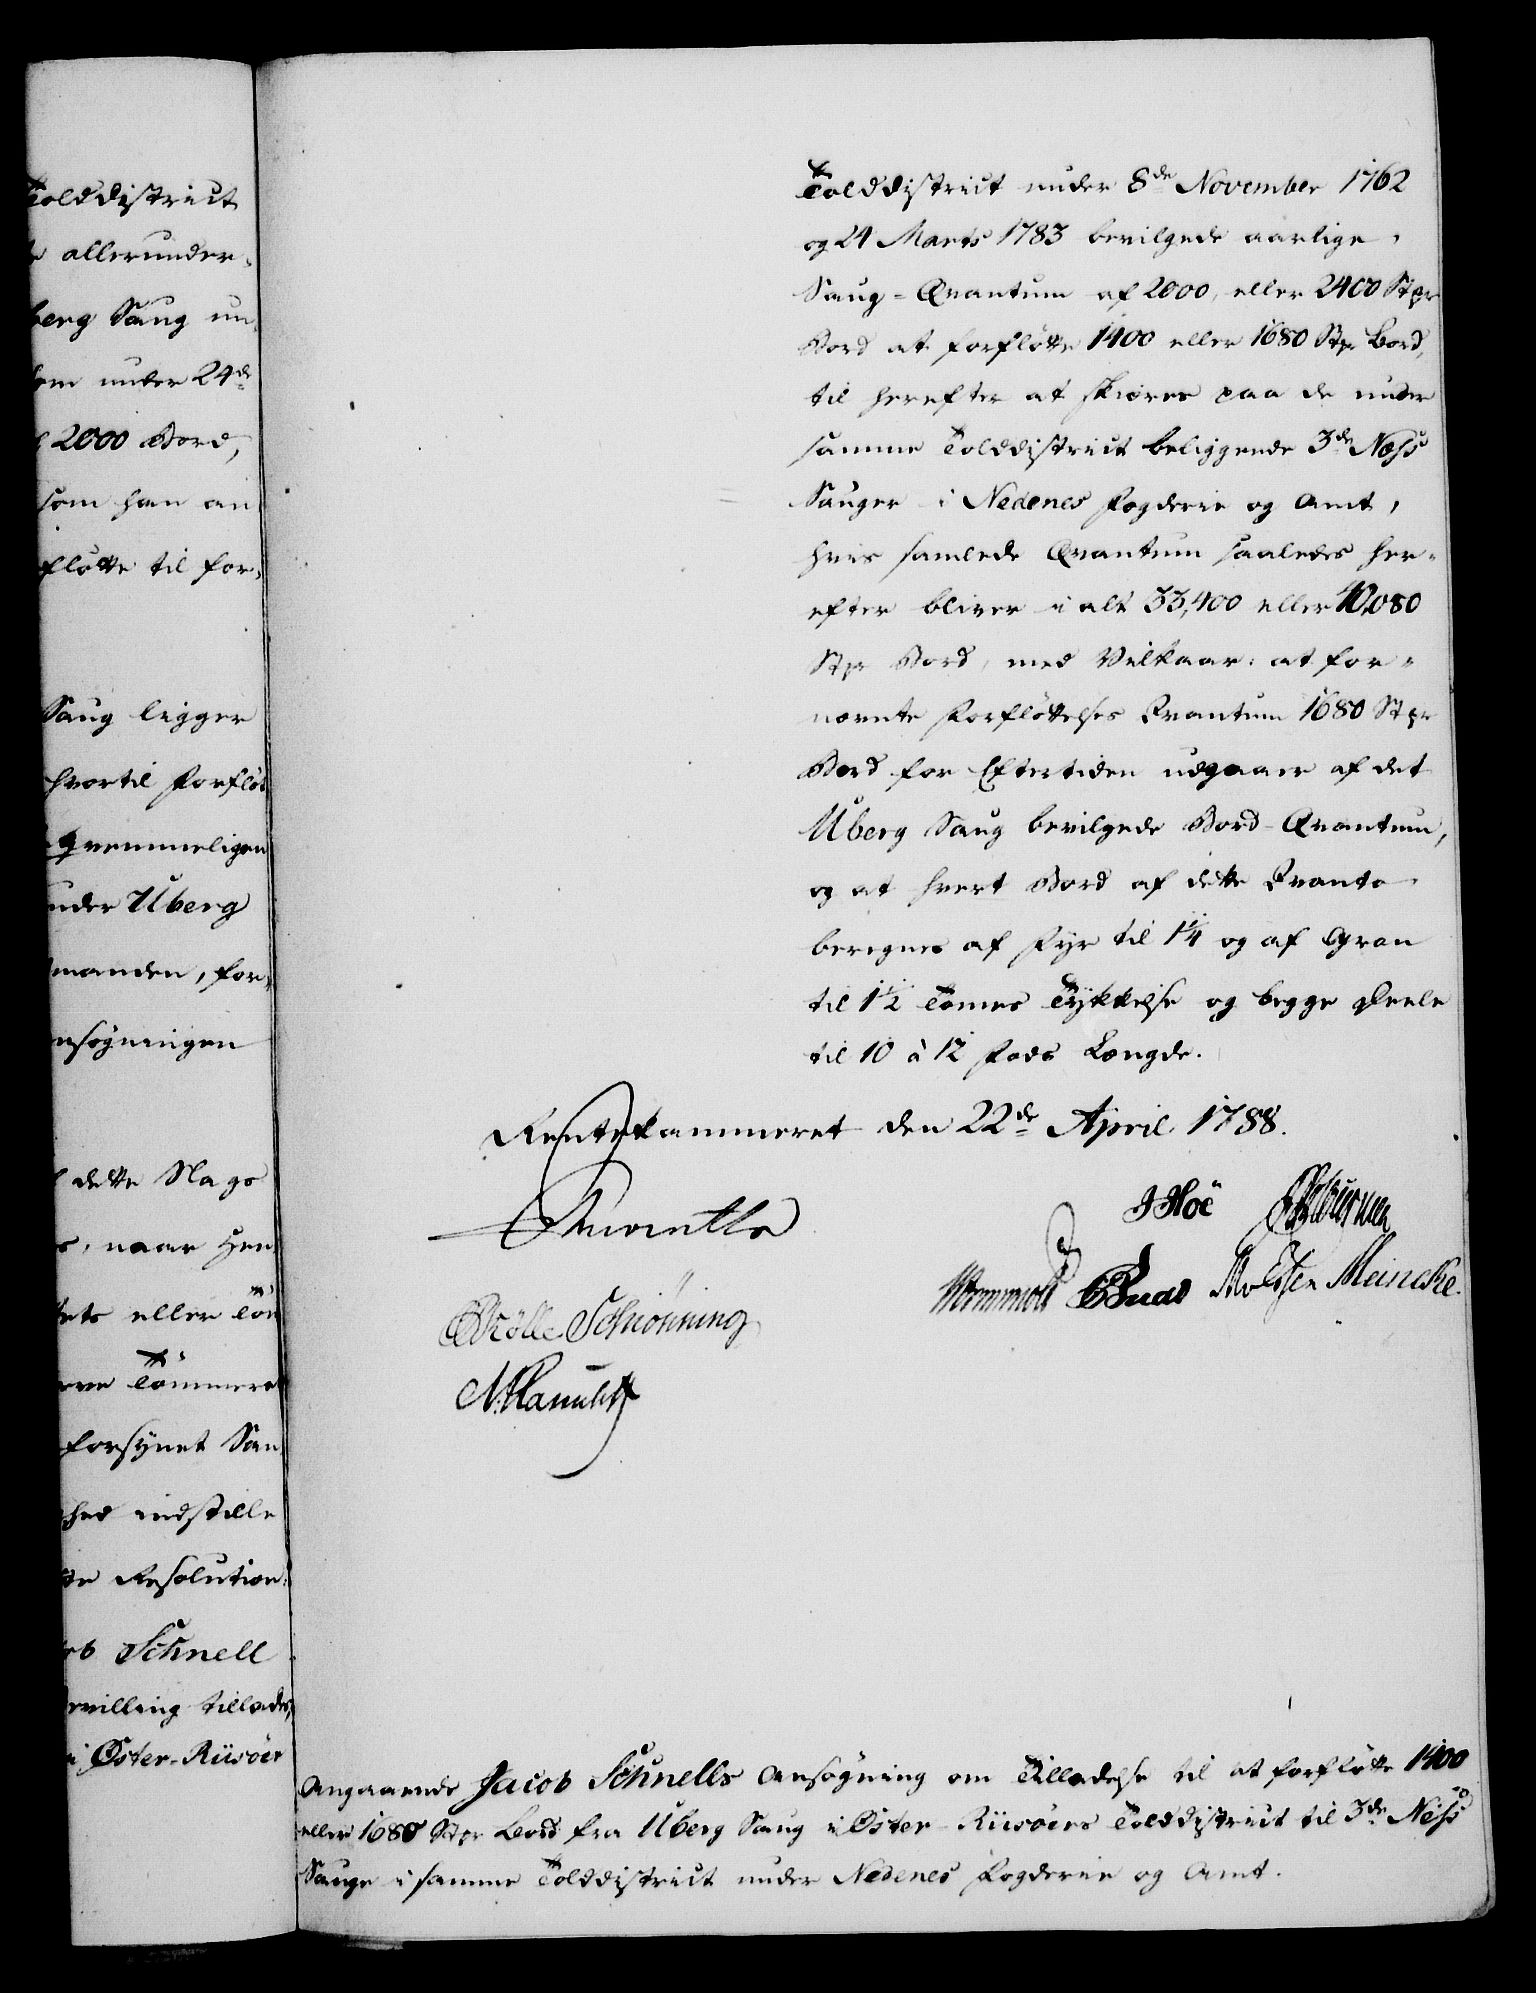 Tolddistrict
allerunder-
berg Saug un-
som under 24de
2000 Bord,
som han an
fløtte til for-
Saug ligger
hvortil Forfløt
qvemmeligen
under Uberg
manden, for-
nsøgningen
dette Slags
naar Hen
eller Tøm
Tømmeret
forsynet Sau
hed indstille
Resolution:
Schnell
evilling tillades,
i Øster-Riisöer
Tolddistrict under 8de November 1762
og 24 Marts 1783 bevilgede aarlige
Saug-Qvantum af 2000, eller 2400 Stpr
Bord at forfløtte 1400 eller 1680 Stpr Bord,
til herefter at skiæres paa de under
samme Tolddistrict beliggende 3de Næss
Sauger i Nedenes Fogderie og Amt,
hvis samlede Qvantum saaledes her-
efter bliver i alt 33,400 eller 40,080
Stpr Bord, med Vilkaar: at for-
nævnte Forfløttelses Qvantum 1680 Stpr
Bord for Eftertiden udgaaer af det
Uberg Saug bevilgede Bord-Qvantum,
og at hvert Bord af dette Qvanto
beregnes af Fyr til 1¼ og af Gran
til 1½ Tomes Tykkelse og begge Deele
til 10 à 12 Fods Længde.
Rentekammeret den 22de April 1788.
J Höe
Wormwold
Meincke.
Schiönning
Angaaende Jacob Schnells Ansøgning om Tilladelse til at forfløtte 1400
eller 1680 Stpr Bord fra Uberg Saug i Øster-Riisöers Tolddistrict til 3de Næss
Sauge i samme Tolddistrict under Nedenes Fogderie og Amt.